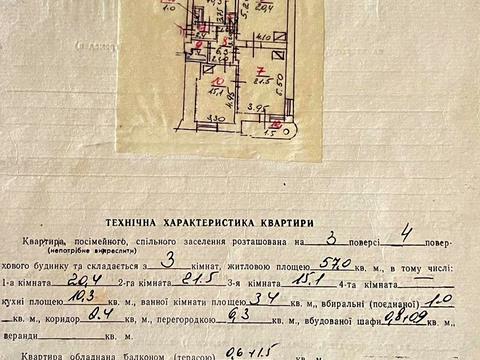 1.0
5.2
20,4
4.10
7
21.5
6.50
10
15,1
4.95
3.30
3.95
1.5
ТЕХНІЧНА ХАРАКТЕРИСТИКА КВАРТИРИ
Квартира, посімейного, спільного заселення розташована на 3 поверсі 4 повер-
(непотрібне викреслити)
хового будинку та складається з 3 кімнат, житловою площею 57,0 кв. м., в тому числі:
1-а кімната 20,4 2-га кімната 21.5 3-я кімната 15.1 4-та кімната кв. м.,
кухні площею 10,3 кв. м., ванної кімнати площею 3.4 кв. м., вбиральні (поєднаної) 1.0
кв. м., коридор 0.4 кв. м., перегородкою 6,3 кв. м., вбудованої шафи 0,8+0,9 кв. м.,
веранди кв. м.
Квартира обладнана балконом (терасою) 0,6+1.5 кв. м.